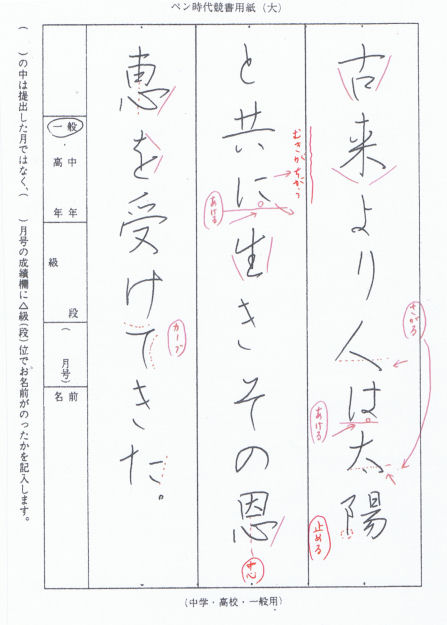 ペン時代競書用紙(大)
古来より人は太陽
と共に生きその恩
恵を受けてきた。
さがる
あげる
止める
むきがちがう
あげる
中心
カーブ
一般
高中
年年
級
段
( 月号)
名前
( )の中は提出した月ではなく、( )月号の成績欄に△級(段)位でお名前がのったかを記入します。
(中学・高校・一般用)